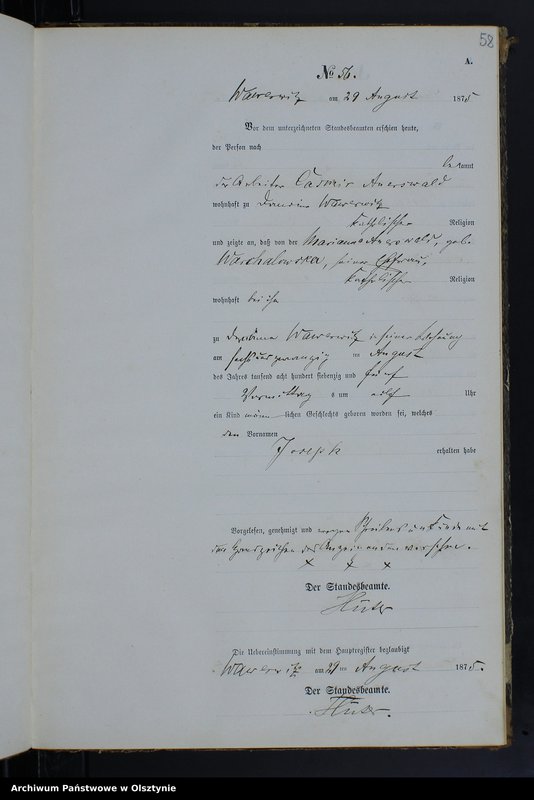 58
A.
No 56.
Wawerwitz am 29 August 1875
Vor dem unterzeichneten Standesbeamten erschien heute,
der Person nach
bekannt
der Arbeiter Casimir Auerswald
wohnhaft zu Domaine Wawerwitz
katholischer Religion
und zeigte an, daß von der Marianna Auerswald, geb.
Waschalowska, seiner Ehefrau,
katholischer Religion
wohnhaft bei ihm
zu Domaine Wawerwitz in seiner Wohnung
am sechs und zwanzig ten August
des Jahres tausend acht hundert siebenzig und fünf
Vormittags um elf Uhr
ein Kind männ lichen Geschlechts geboren worden sei, welches
den Vornamen
Joseph
erhalten habe
Vorgelesen, genehmigt und wegen Schreibensunkunde mit
den Handzeichen des Anzeigenden versehen.
x x x
Der Standesbeamte.
Hüter
Die Uebereinstimmung mit dem Hauptregister beglaubigt
Wawerwitz am 29 ten August 1875.
Der Standesbeamte.
Hüter.
Archiwum Państwowe w Olsztynie